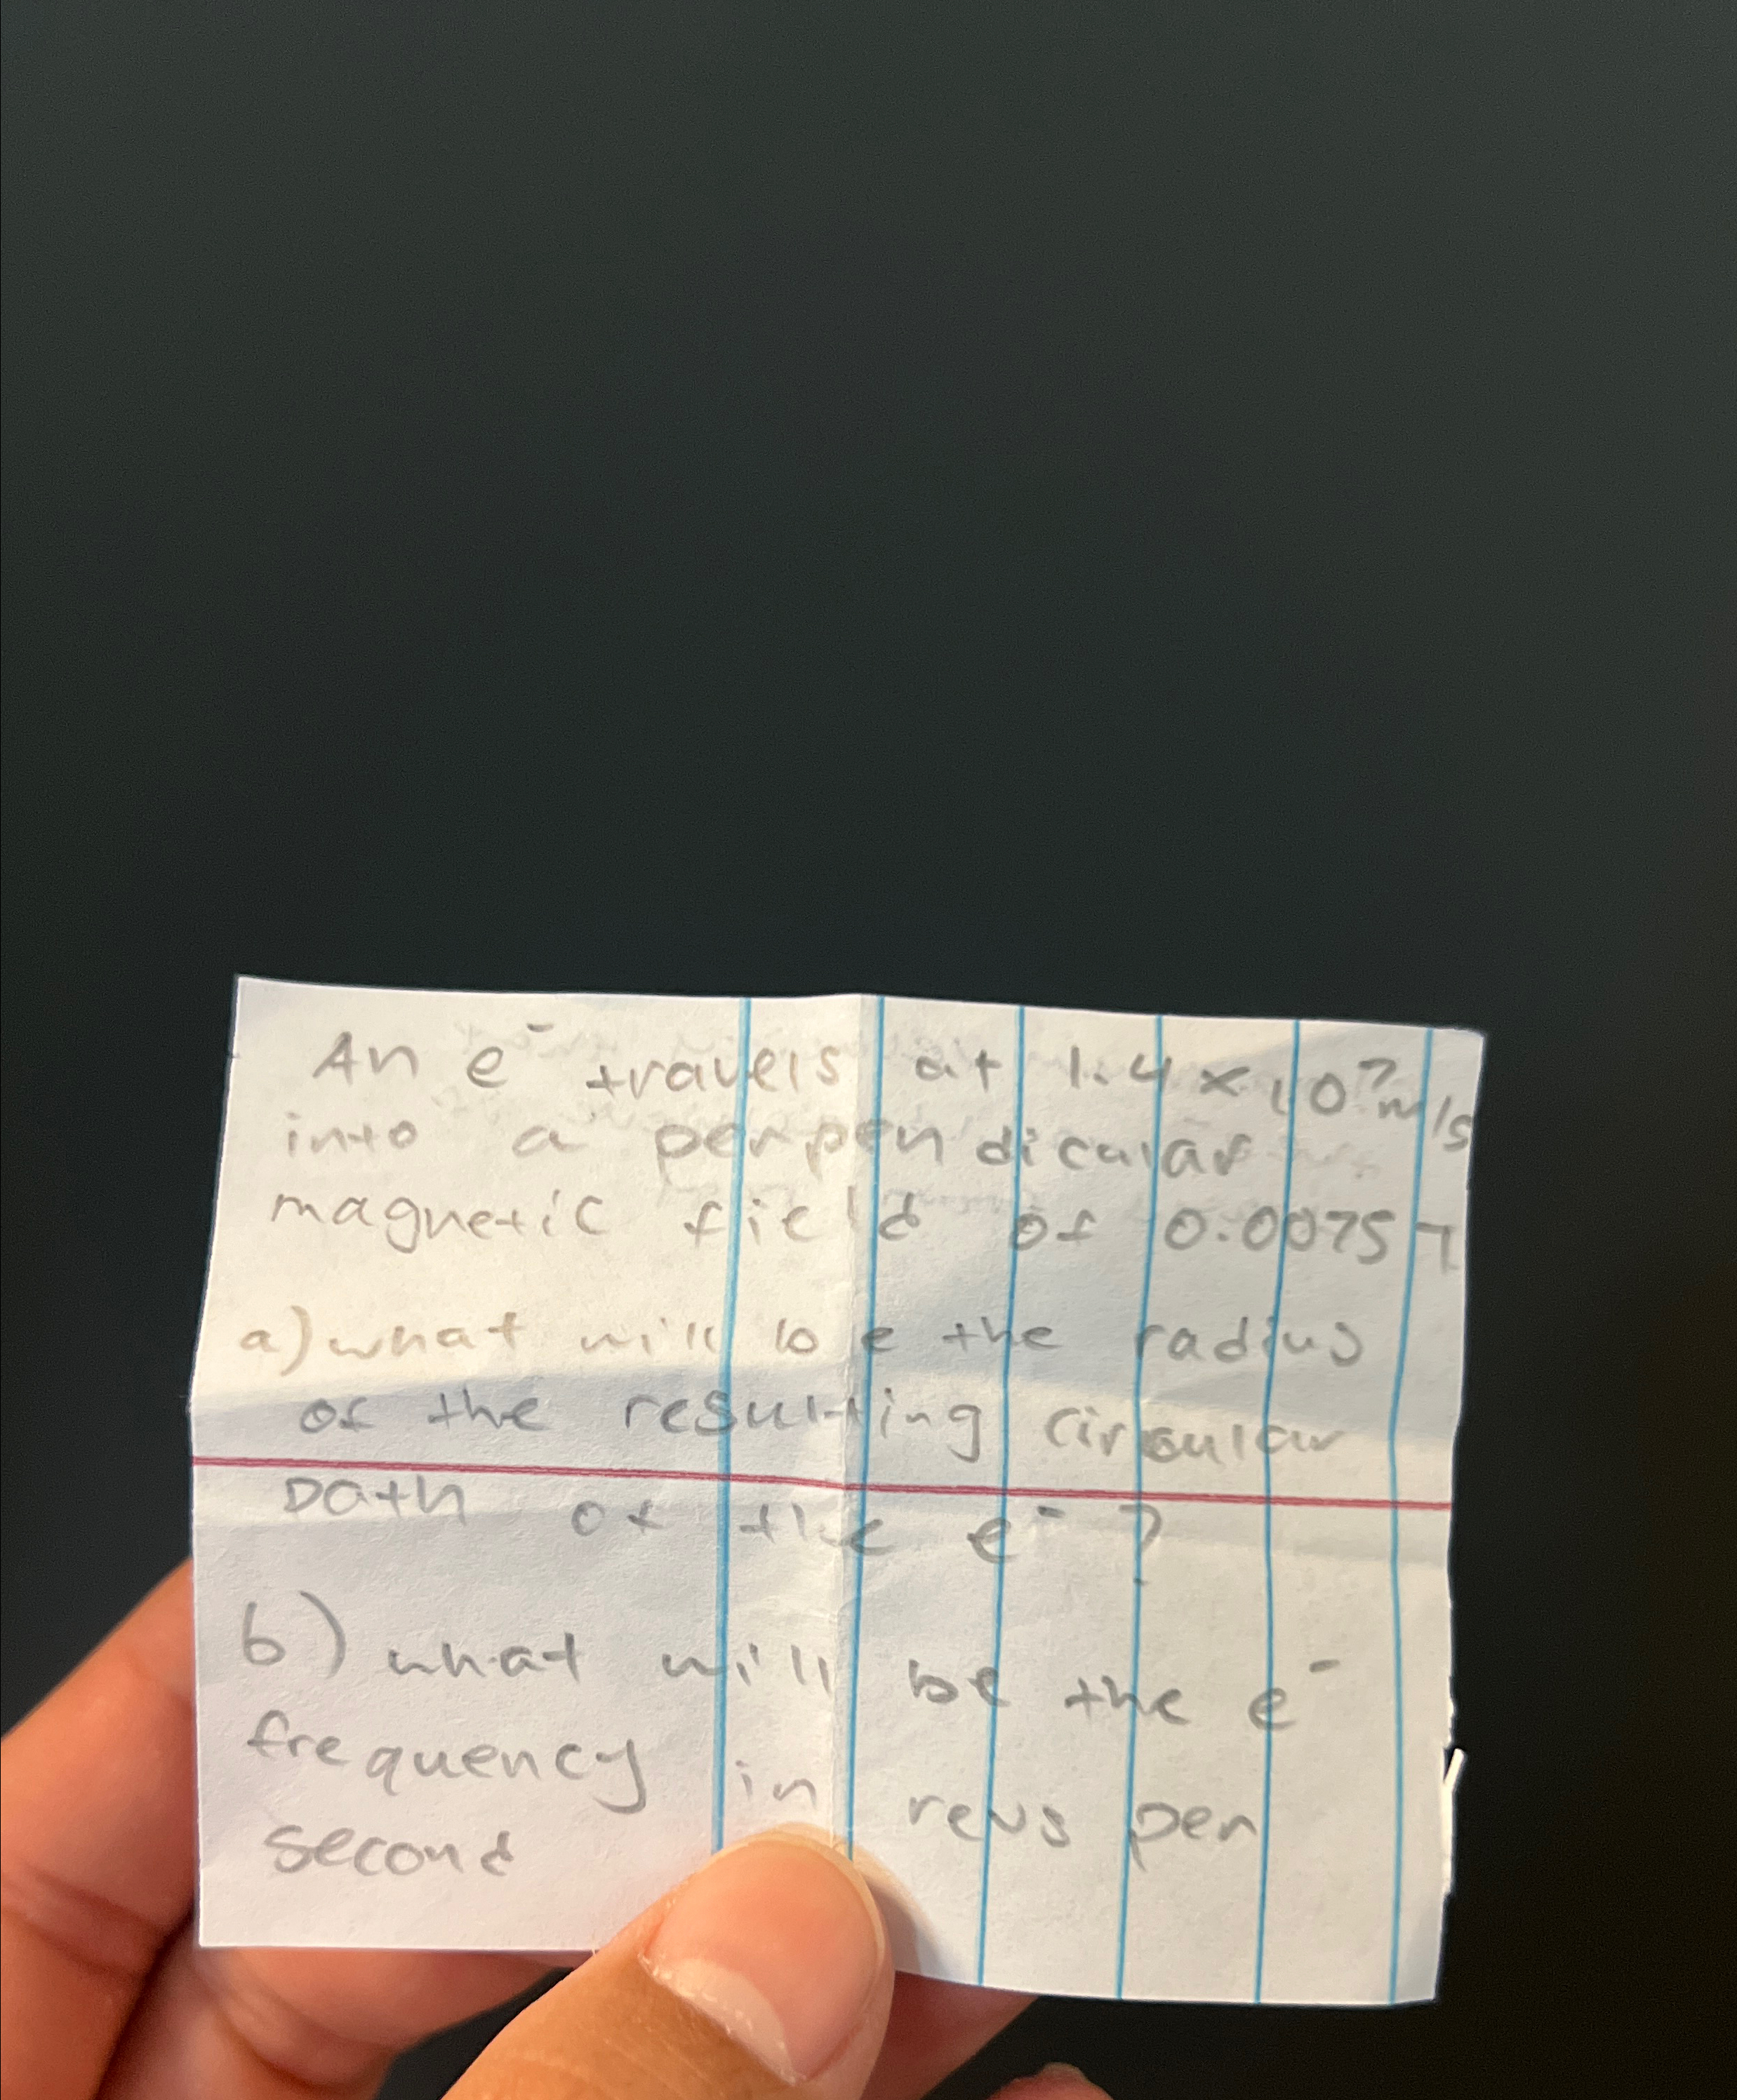 An e⁻ travels at 1.4 × 10⁷ m/s
into a perpendicular
magnetic field of 0.0075 T
a) what will be the radius
of the resulting circular
path of the e⁻?
b) what will be the e⁻
frequency in revs per
second